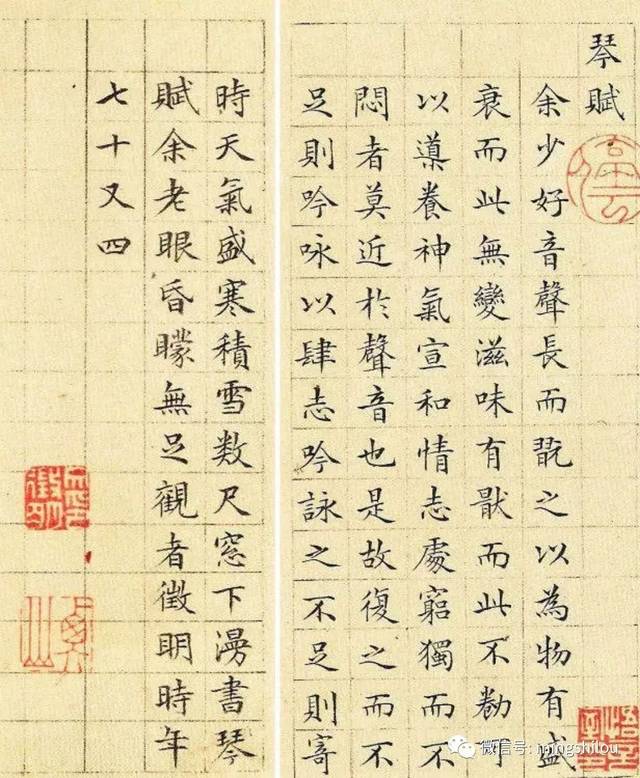 琴賦
余少好音聲長而翫之以為物有盛
衰而此無變滋味有猒而此不勌可
以導養神氣宣和情志處窮獨而不
悶者莫近於聲音也是故復之而不
足則吟咏以肆志吟詠之不足則寄
時天氣盛寒積雪数尺窓下漫書琴
賦余老眼昏矇無足觀者徵明時年
七十又四
微信号: mingshilou